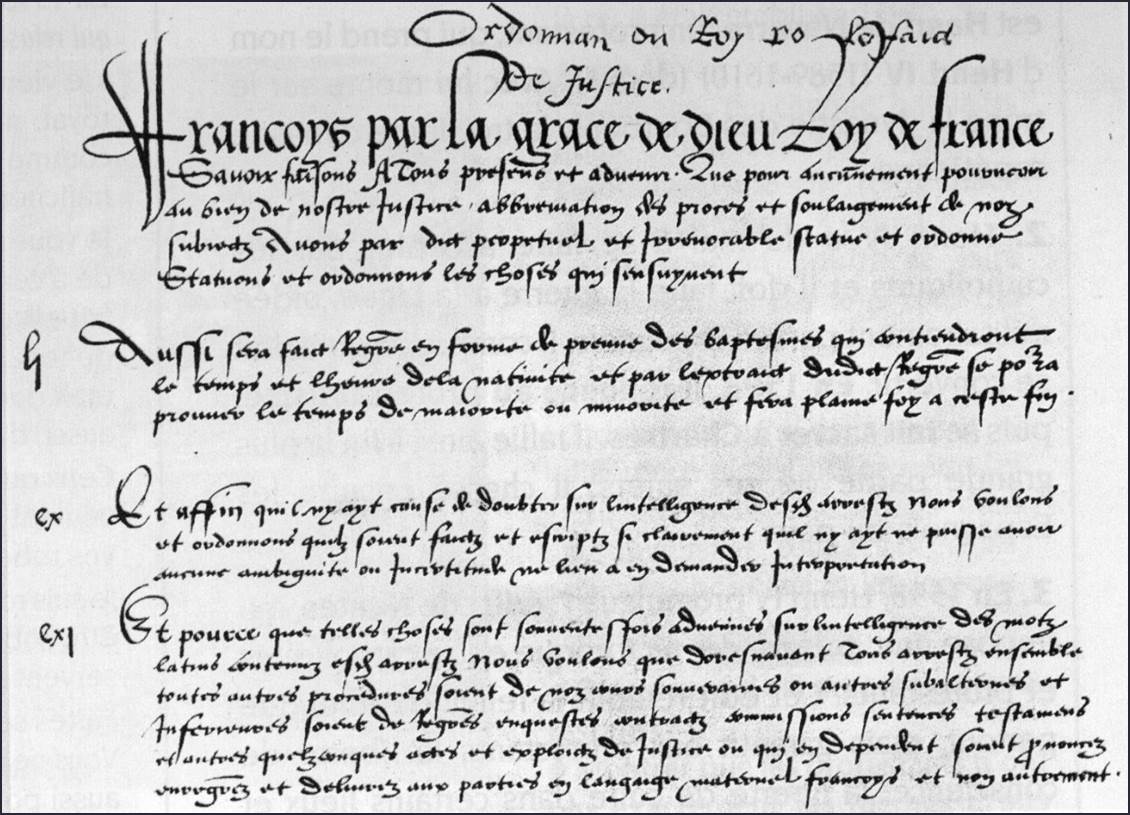 Ordonnan du Roy po le faict
de Justice.
Francoys par la grace de dieu Roy de france
Savoir faisons A Tous presens et advenir. Que pour aucunement pourveoir
au bien de nostre Justice. abbreviation des proces et soulaigement de noz
subiectz Avons par dict perpetuel et Irrevocable statue et ordonne
Statuons et ordonnons les choses qui sensuyvent
Aussi sera faict Regre en forme de preuve des baptesmes qui contiendront
le temps et lheure dela nativite et par lextraict dudict Regre se porra
prouver le temps de maiorite ou minorite et fera plaine foy a ceste fin
cx Et affin quil ny ayt cause de doubter sur lintelligence desd arrestz Nous voulons
et ordonnons quilz soient faictz et escriptz si clairement quil ny ayt ne puisse avoir
aucune ambiguite ou Incertitude ne lieu a en demander Interpretation
cxj Et pource que telles choses sont souventesffois advenues sur lintelligence des motz
latins contenuz esd arrestz Nous voulons que doresnavant Tous arrestz ensemble
toutes autres procedures soient de noz cours souveraines ou autres subalternes et
Inferieures soient de Regres enquestes contractz commissions sentences testamens
et autres quelzconques actes et exploictz de Justice ou qui en dependent soient pnoncez
enregrez et delivrez aux parties en langage maternel francoys et non autrement.